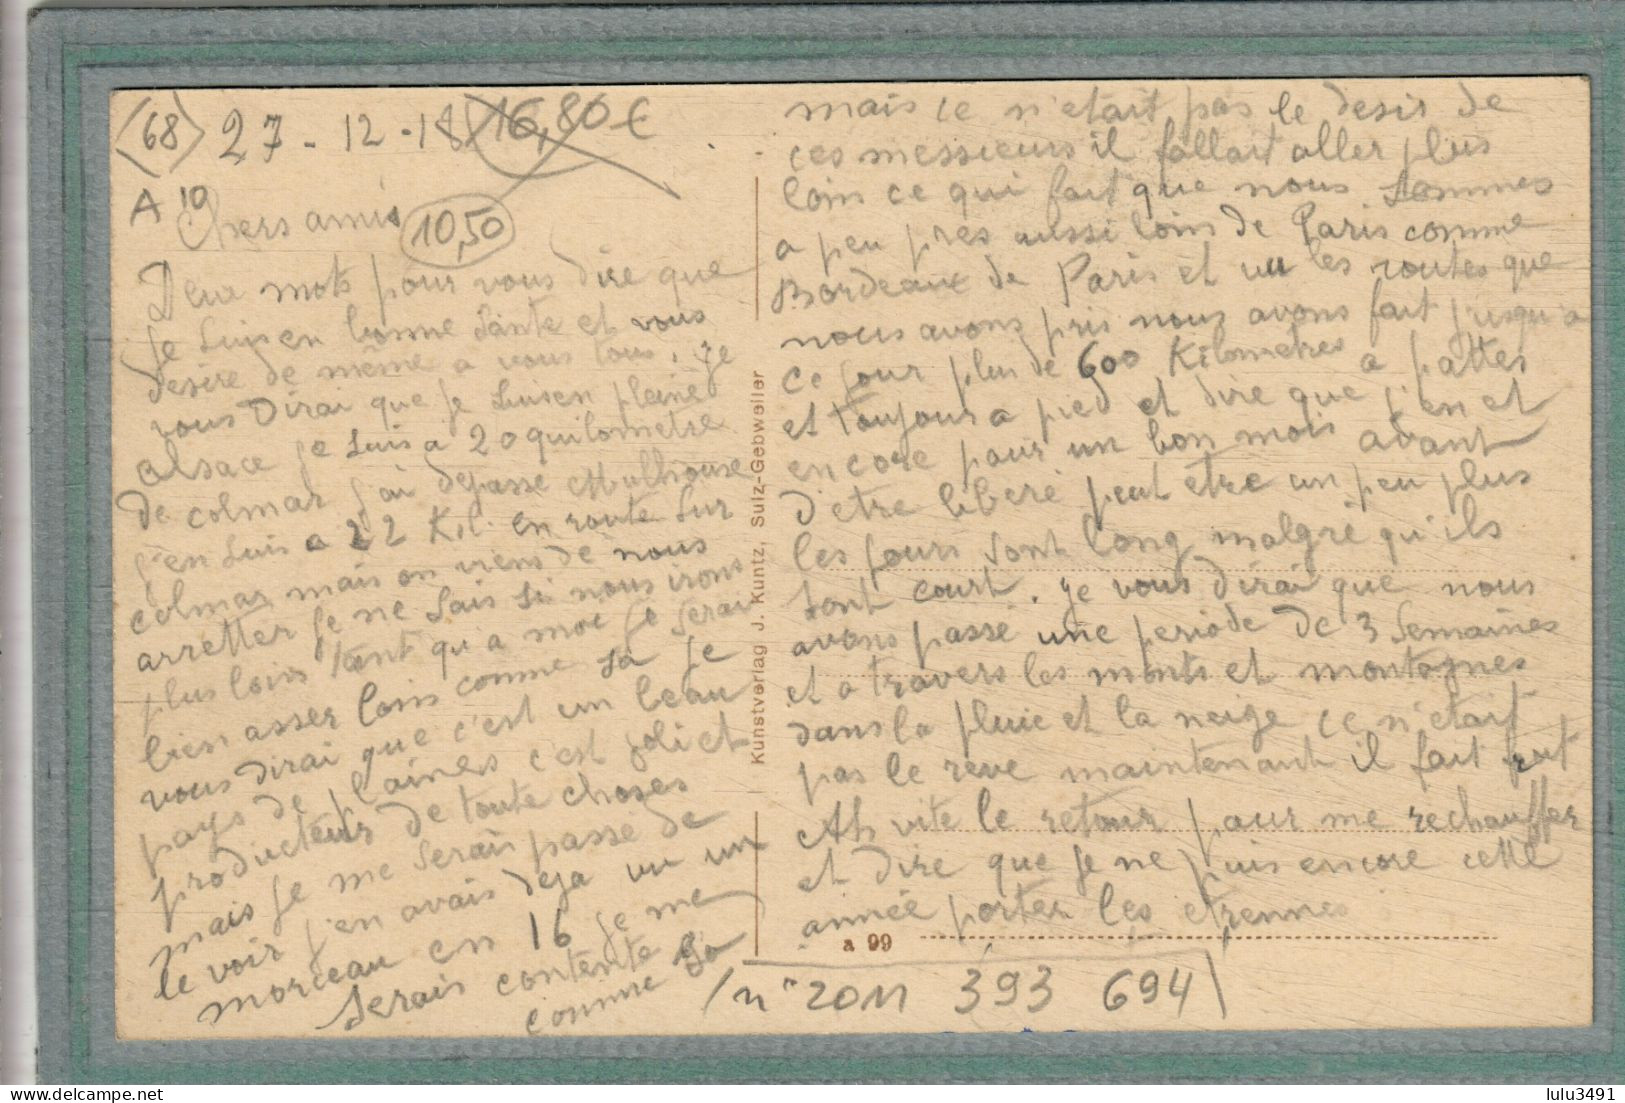 (68) 27-12-18 16,80€
A 10
Chers amis 10,50
Deux mots pour vous dire que
je suis en bonne sante et vous
desire de même a vous tous. je
vous Dirai que je suis en pleine
alsace je suis a 20 quilometre
de colmar j'ai dépassé Mulhouse
j'en suis a 22 Kil. en route sur
colmar mais on viens de nous
arretter je ne sais si nous irons
plus loin tant qu'a moi je serai
bien asser loin comme sa je
vous dirai que c'est un beau
pays de plaines c'est joli et
producteur de toute choses
mais je me serais passé de
le voir j'en avais deja vu un
morceau en 16 je me
serais contente
comme sa
mais ce n'etait pas le desir de
ces messieurs il fallait aller plus
loin ce qui fait que nous sommes
a peu pres aussi loin de Paris comme
Bordeaux de Paris et vu les routes que
nous avons pris nous avons fait jusqu'a
ce jour plus de 600 Kilometres a pattes
et toujours a pied et dire que j'en et
encore pour un bon mois avant
d'etre liberé peut etre un peu plus
les jours sont long malgré qu'ils
sont court. je vous dirai que nous
avons passé une periode de 3 semaines
et a travers les monts et montagnes
dans la pluie et la neige ce n'etait
pas le reve maintenant il fait
Ah vite le retour pour me rechauffer
et dire que je ne puis encore cette
année porter les etrennes
a 99
n° 2011 393 694
Kunstverlag J. Kuntz, Sulz-Gebweiler
lulu3491